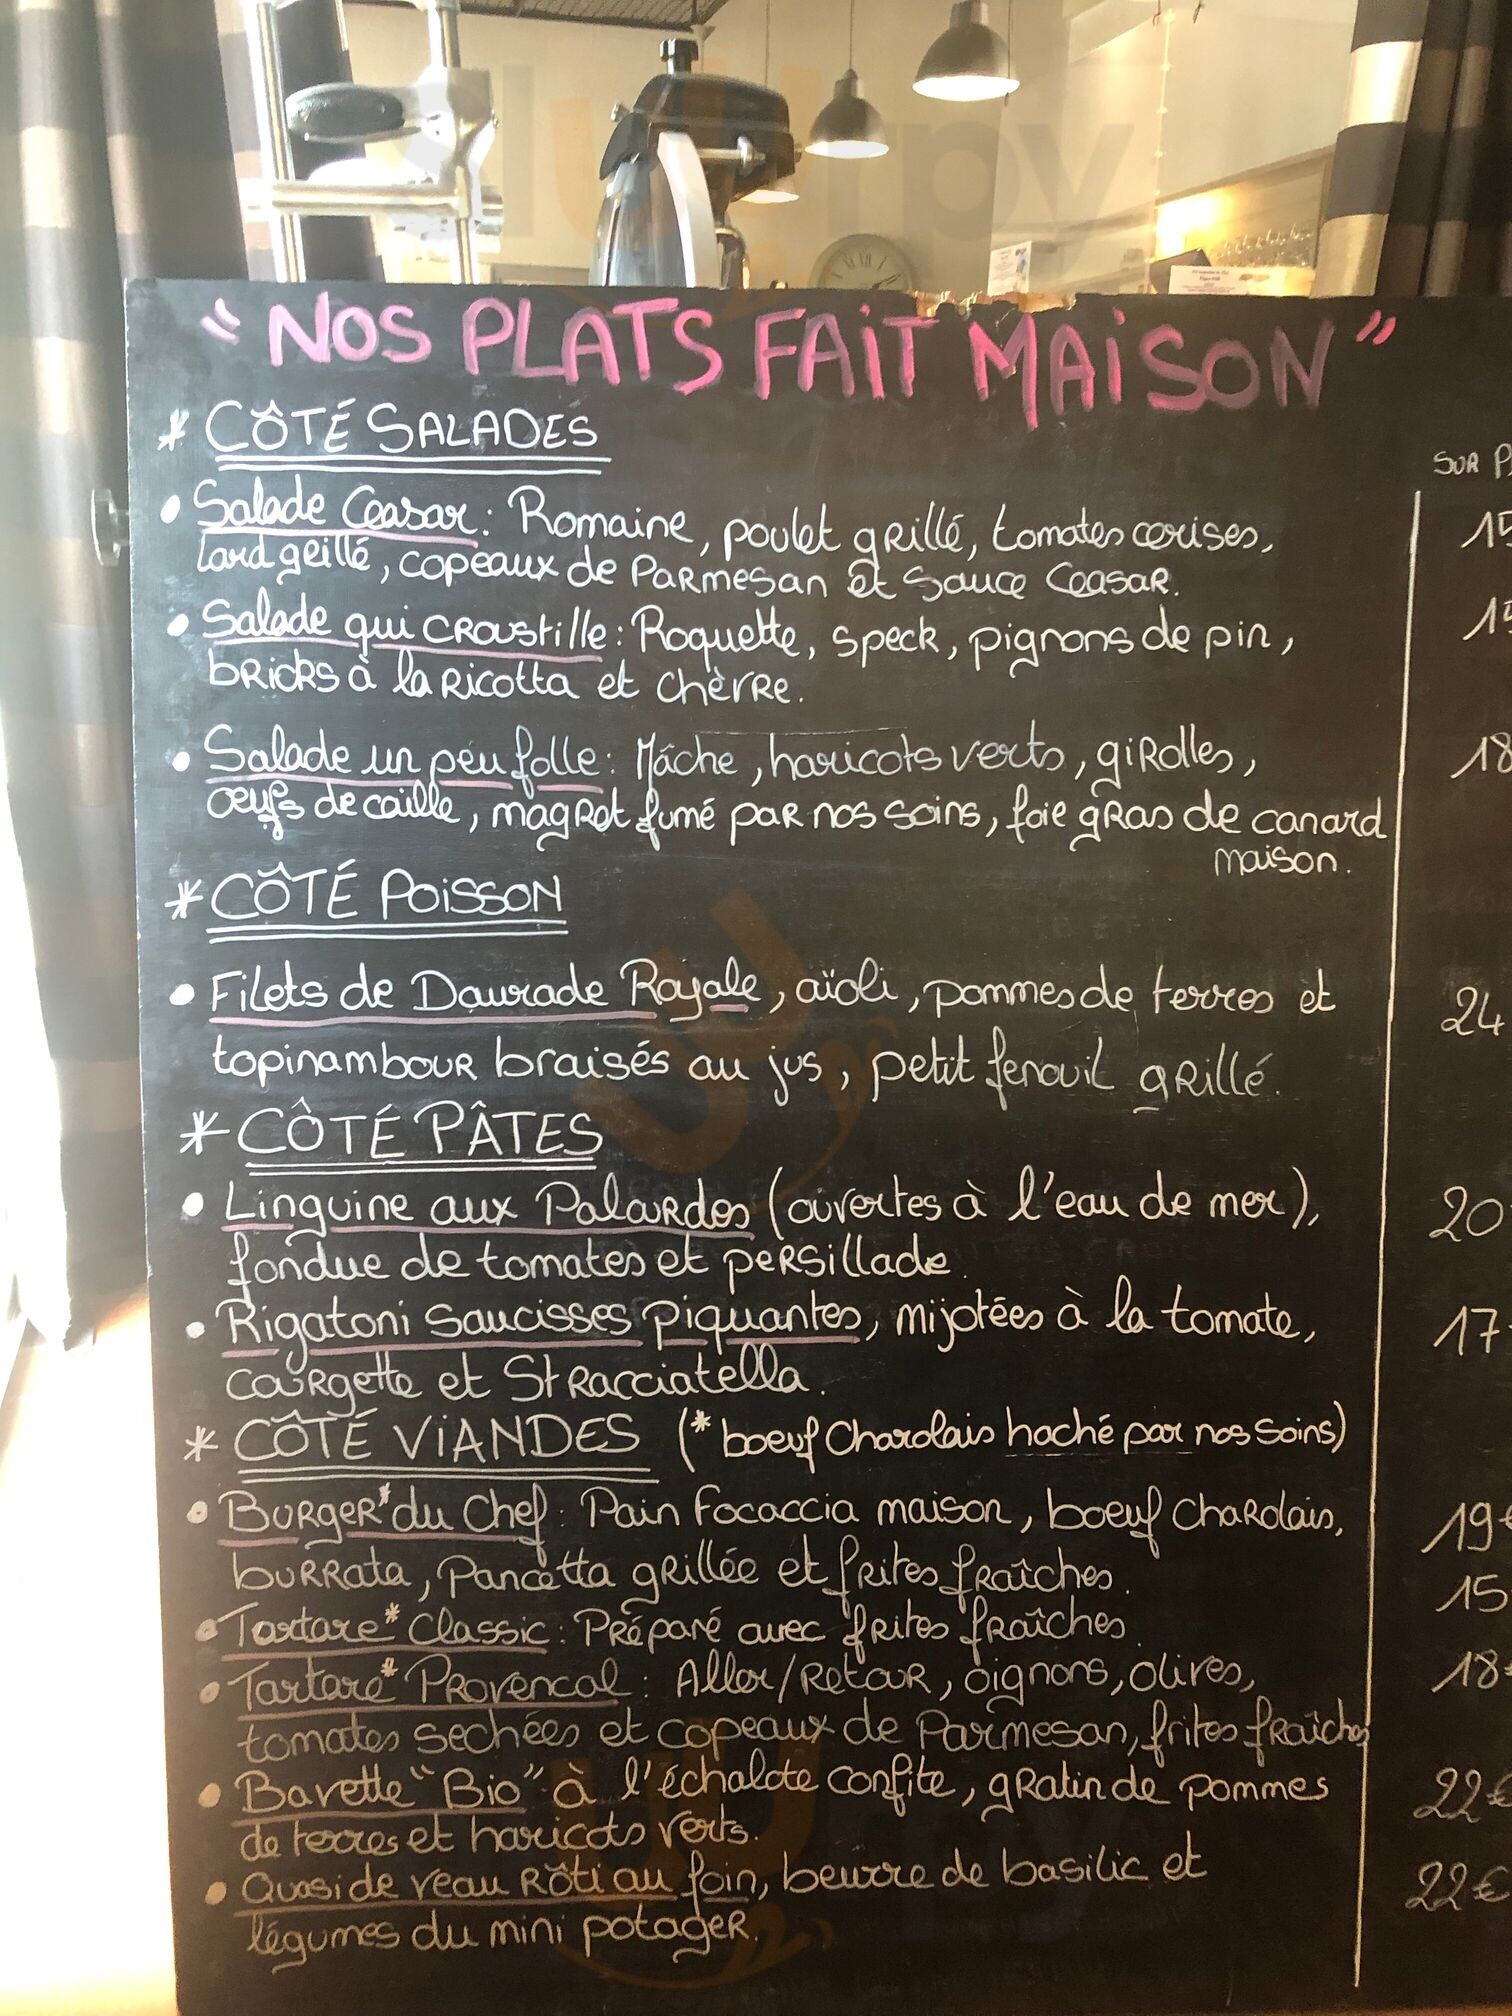 "NOS PLATS FAiT MAiSON"
* CÔTÉ SALADES
SUR P
• Salade Ceasar : Romaine, poulet grillé, tomates cerises,
15
lard grillé, copeaux de Parmesan et sauce Ceasar.
• Salade qui croustille : Roquette, speck, pignons de pin,
bricks à la Ricotta et chèvre.
• Salade un peu folle : Mâche, haricots verts, girolles,
18
œufs de caille, magret fumé par nos soins, foie gras de canard
maison.
* CÔTÉ POiSSON
• Filets de Daurade Royale, aïoli, pommes de terres et
24
topinambour braisés au jus, petit fenouil grillé.
* CÔTÉ PÂTES
• Linguine aux Palourdes (ouvertes à l'eau de mer),
20
fondue de tomates et persillade
• Rigatoni saucisses piquantes, mijotées à la tomate,
17
courgette et Stracciatella.
* CÔTÉ ViANDES (* boeuf Charolais haché par nos soins)
• Burger* du Chef : Pain Focaccia maison, boeuf charolais,
19€
burrata, pancetta grillée et frites fraîches.
15
• Tartare* Classic : Préparé avec frites fraîches.
• Tartare* Provencal : Aller/Retour, oignons, olives,
18
tomates sechées et copeaux de Parmesan, frites fraîches
• Bavette "Bio" à l'échalote confite, gratin de pommes
22€
de terres et haricots verts.
• Quasi de veau Rôti au foin, beurre de basilic et
22€
légumes du mini potager.